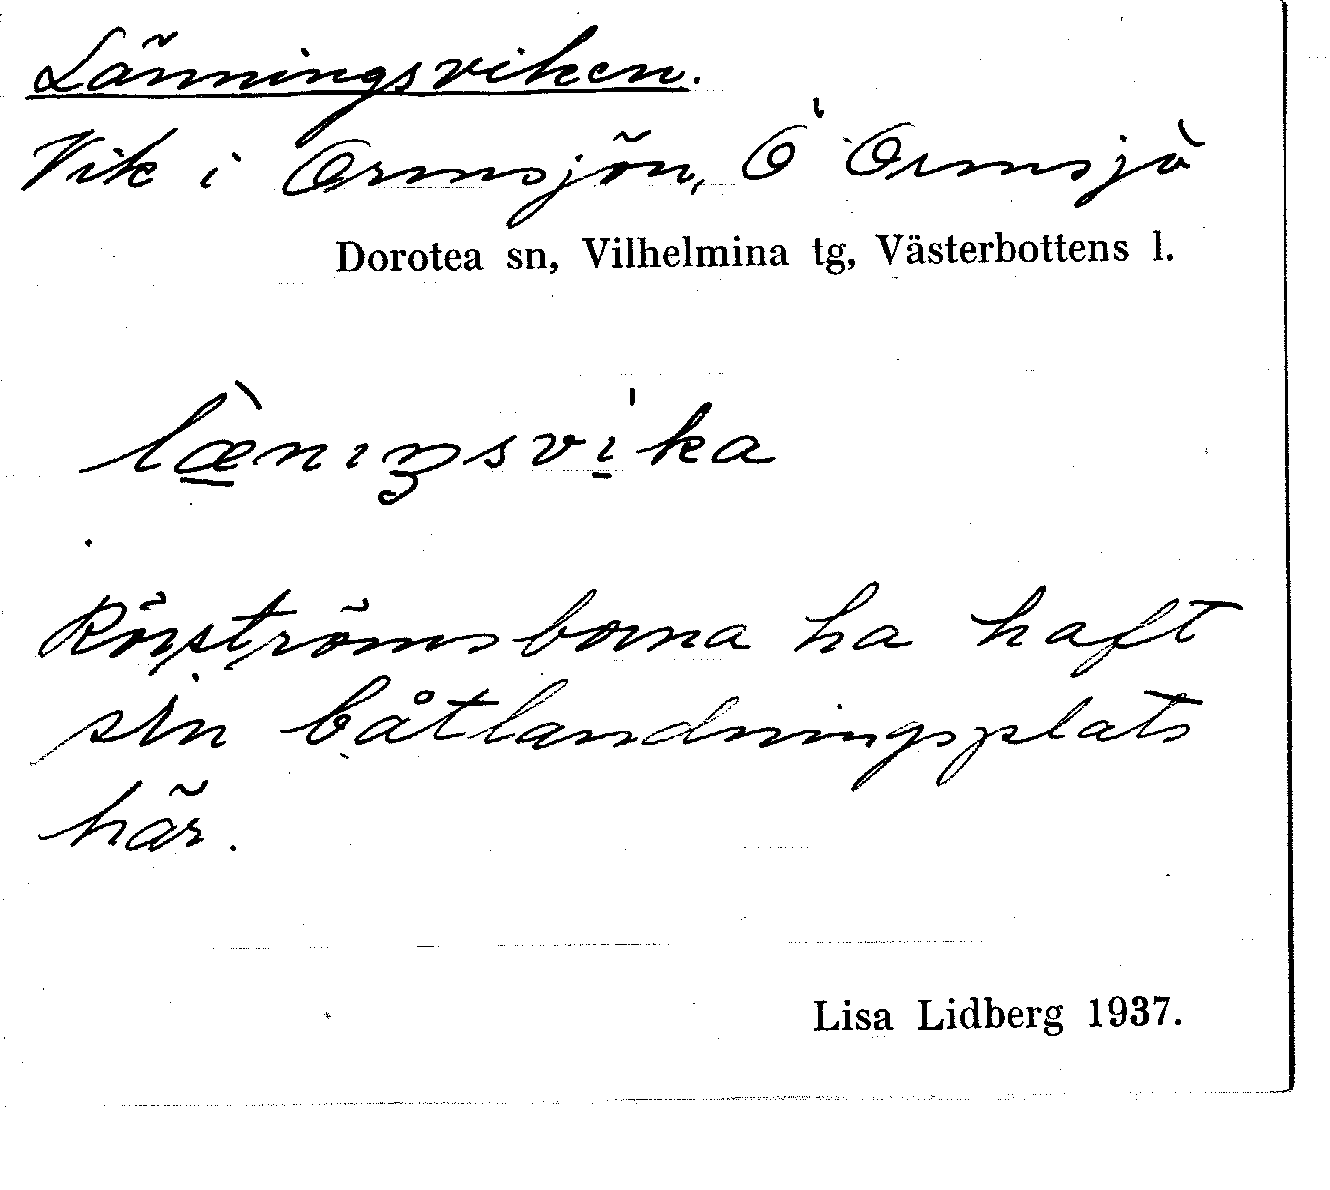 Länningsviken.
Vik i Ormsjön, Ö Ormsjö
Dorotea sn, Vilhelmina tg, Västerbottens l.
læ̀nıŋsvi̍ka
Röströmsborna ha haft
sin båtlandningsplats
här.
Lisa Lidberg 1937.